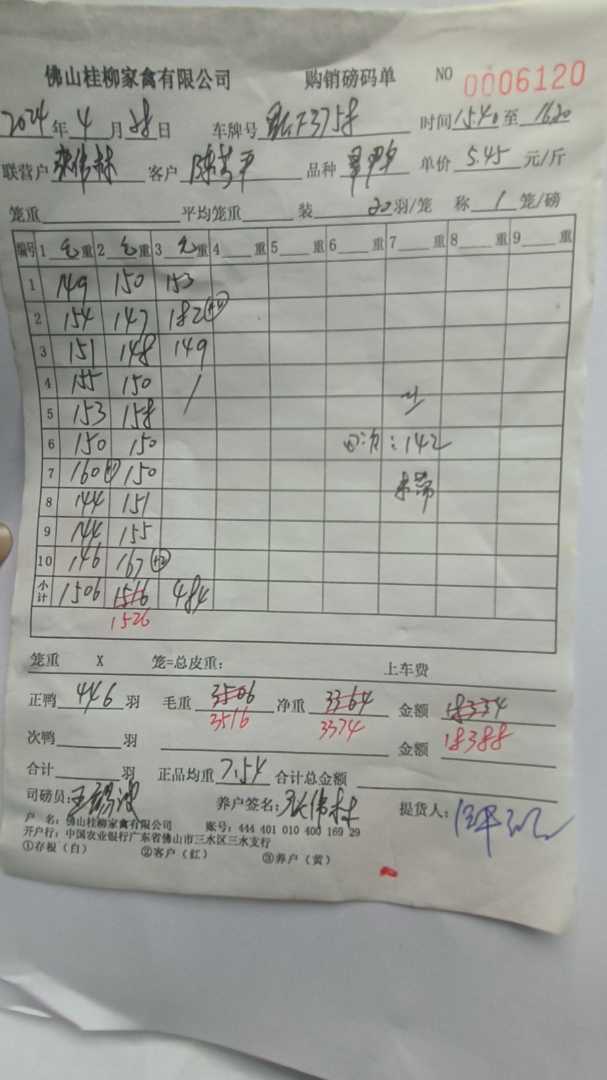 佛山桂柳家禽有限公司 购销磅码单 NO 0006120
2024年4月28日 车牌号 F3758 时间15.40至16.20
联营户 客户 陈 平 品种 单价5.45元/斤
笼重 平均笼重 装20羽/笼 称1笼/磅
编号 1毛重 2毛重 3毛重 4重 5重 6重 7重 8重 9重
1 149 150 153
2 154 147 182
3 151 148 149
4 155 150 /
5 153 158
6 150 150 142
7 160 150
8 144 151
9 144 155
10 146 167 (+2)
小计 1506 1516 484
1526
笼重 X 笼=总皮重: 上车费
正鸭446羽 毛重3506 净重3364 金额18334
3516 3374 18388
次鸭 羽 金额
合计 羽 正品均重7.54 合计总金额
司磅员: 养户签名: 提货人:
户 名: 佛山桂柳家禽有限公司 账号: 444 401 010 400 169 29
开户行: 中国农业银行广东省佛山市三水区三水支行
①存根(白) ②客户(红) ③养户(黄)